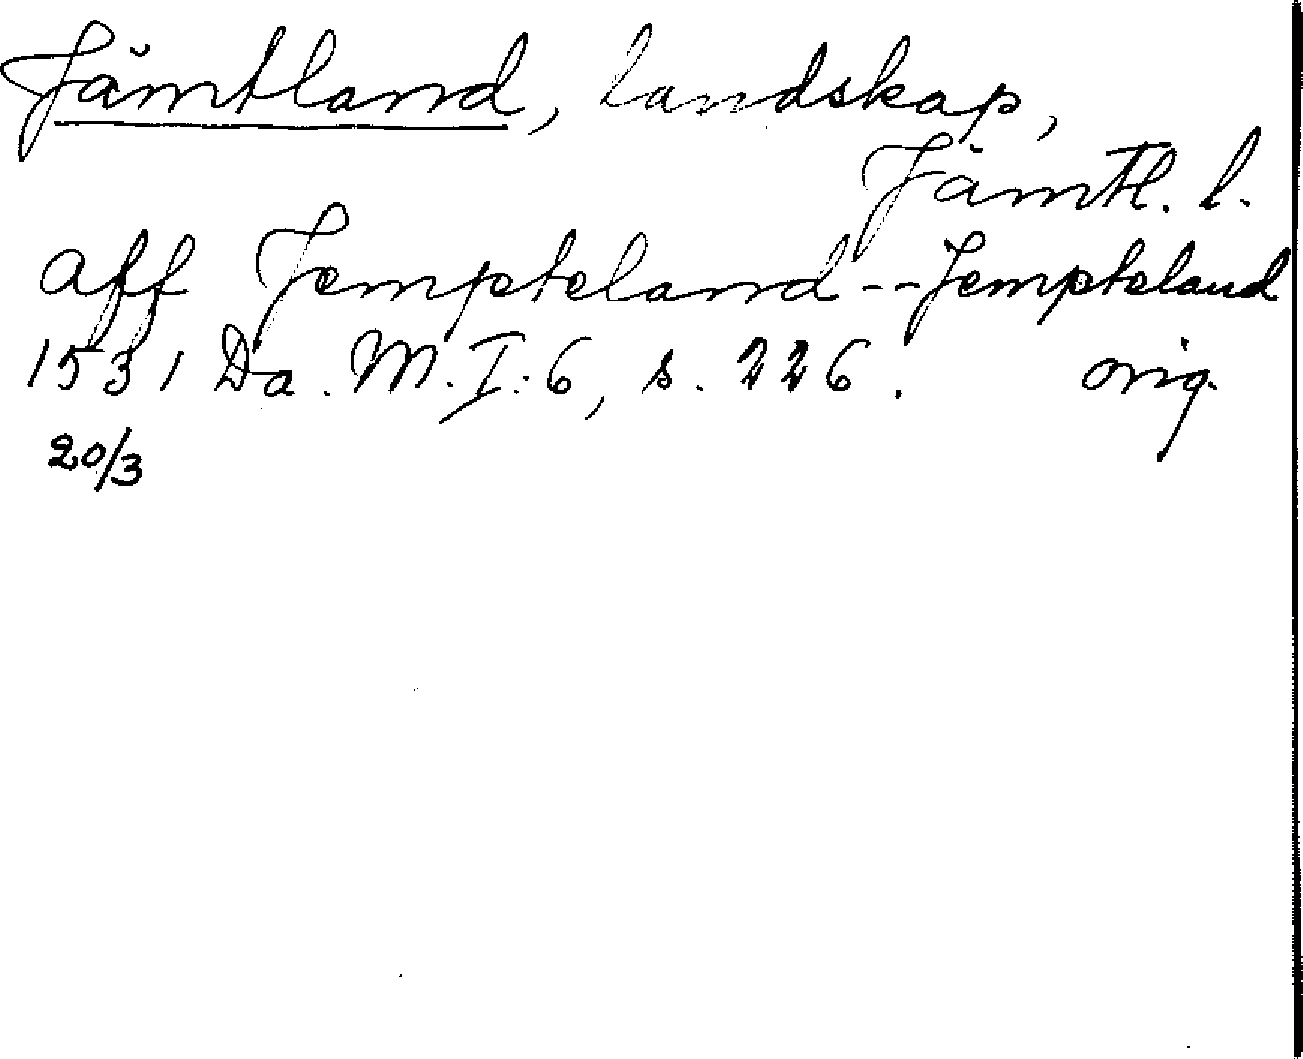 Jämtland, landskap,
Jämtl. l.
aff Jempteland -- Jempteland
1531 Da. M. I: 6, s. 226. orig.
20/3